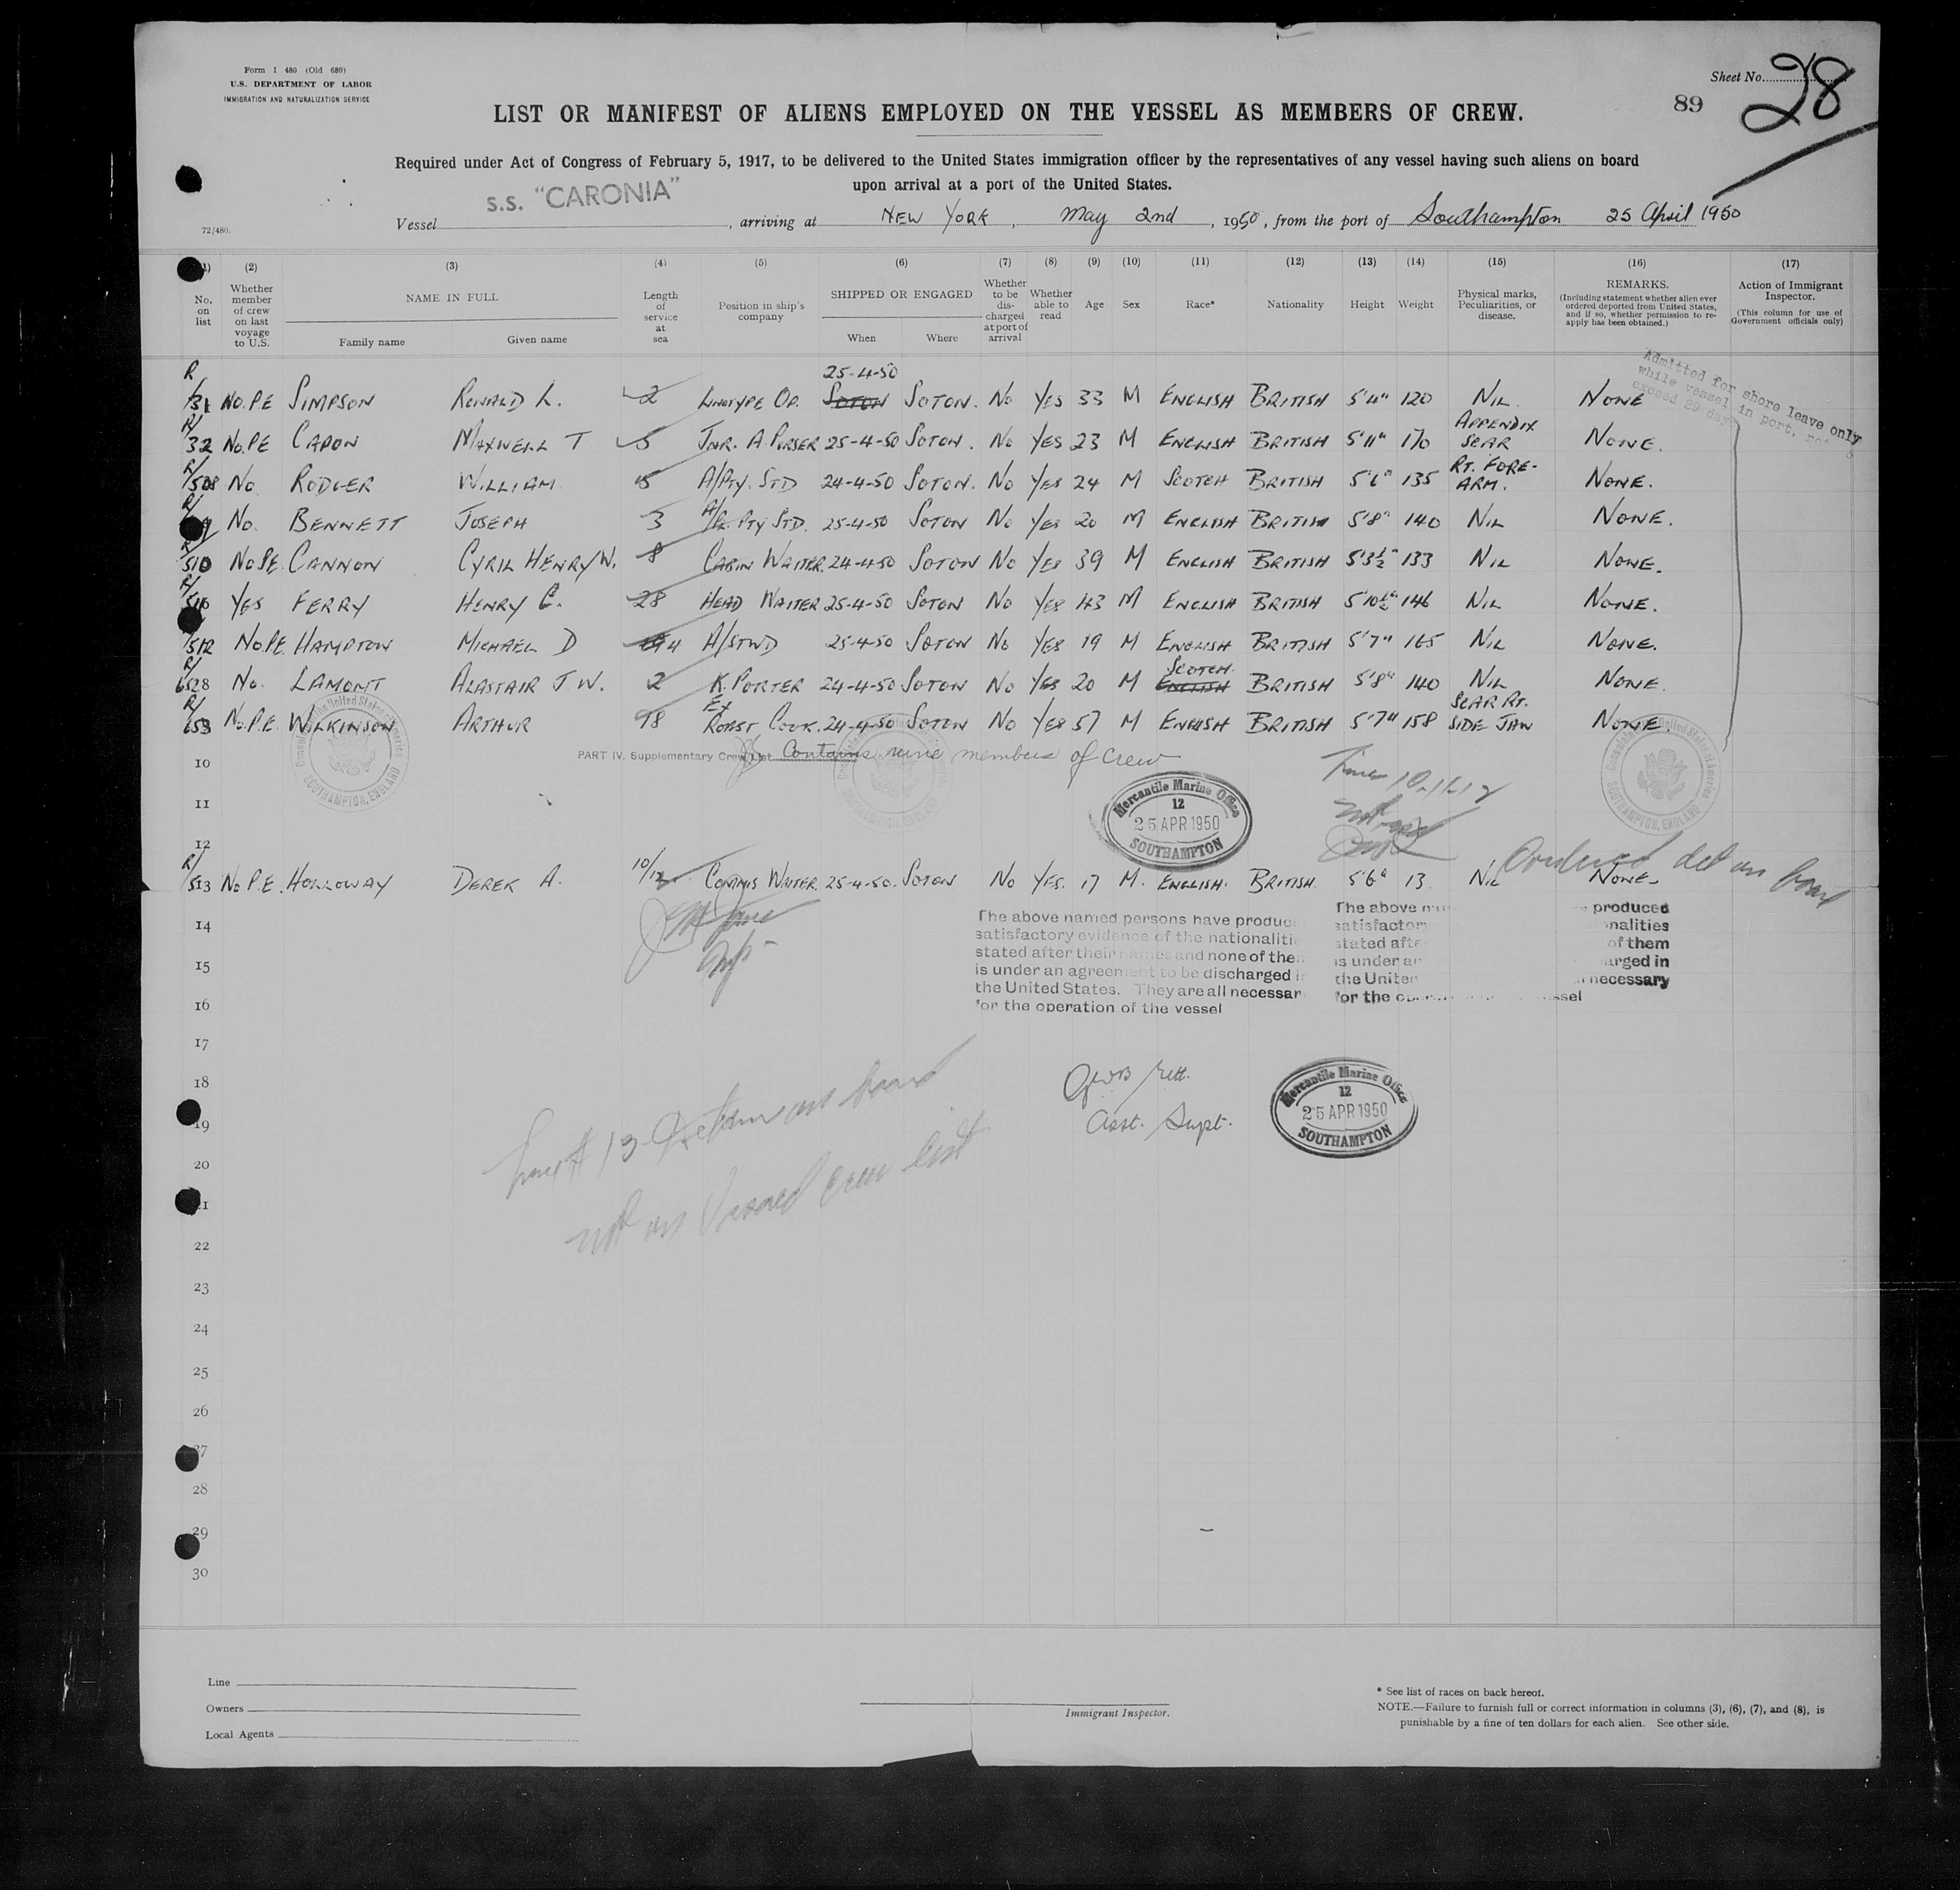 Form I 480 (Old 680)
U.S. DEPARTMENT OF LABOR
IMMIGRATION AND NATURALIZATION SERVICE
Sheet No. 28
89
LIST OR MANIFEST OF ALIENS EMPLOYED ON THE VESSEL AS MEMBERS OF CREW.
Required under Act of Congress of February 5, 1917, to be delivered to the United States immigration officer by the representatives of any vessel having such aliens on board
upon arrival at a port of the United States.
72/480.
Vessel S.S. "CARONIA", arriving at NEW YORK, May 2nd, 1950, from the port of Southampton 25 April 1950
(1) (2) (3) (4) (5) (6) (7) (8) (9) (10) (11) (12) (13) (14) (15) (16) (17)
No. on list
Whether member of crew on last voyage to U.S.
NAME IN FULL
Family name Given name
Length of service at sea
Position in ship's company
SHIPPED OR ENGAGED
When Where
Whether to be discharged at port of arrival
Whether able to read
Age
Sex
Race*
Nationality
Height
Weight
Physical marks, Peculiarities, or disease.
REMARKS.
(Including statement whether alien ever ordered deported from United States, and if so, whether permission to reapply has been obtained.)
Action of Immigrant Inspector.
(This column for use of Government officials only)
Admitted for shore leave only
while vessel in port, not
exceed 29 days
R/31 NO.PE SIMPSON RONALD L. 2 LINOTYPE OP. 25-4-50 SOTON SOTON. NO YES 33 M ENGLISH BRITISH 5'4" 120 NIL. NONE
R/32 NO.PE CAPON MAXWELL T 5 JNR. A. PURSER 25-4-50 SOTON. NO YES 23 M ENGLISH BRITISH 5'11" 170 APPENDIX SCAR NONE.
R/508 NO RODGER WILLIAM 5 A/PTY. STD 24-4-50 SOTON. NO YES 24 M SCOTCH BRITISH 5'6" 135 RT. FORE-ARM. NONE.
NO. BENNETT JOSEPH 3 PTY STD. 25-4-50 SOTON NO YES 20 M ENGLISH BRITISH 5'8" 140 NIL NONE.
R/510 NO.PE. CANNON CYRIL HENRY W. 8 CABIN WAITER. 24-4-50 SOTON NO YES 39 M ENGLISH BRITISH 5'3½" 133 NIL NONE.
R/ YES FERRY HENRY C. 28 HEAD WAITER 25-4-50 SOTON NO YES 43 M ENGLISH BRITISH 5'10½" 146 NIL NONE.
R/512 NO.PE. HAMPTON MICHAEL D 4 A/STWD 25-4-50 SOTON NO YES 19 M ENGLISH BRITISH 5'7" 165 NIL NONE.
R/628 NO. LAMONT ALASTAIR J W. 2 K. PORTER 24-4-50 SOTON NO YES 20 M SCOTCH. ENGLISH BRITISH 5'8" 140 NIL NONE.
R/653 NO.P.E. WILKINSON ARTHUR 18 EX ROAST COOK. 24-4-50 SOTON NO YES 57 M ENGLISH BRITISH 5'7" 158 SCAR RT. SIDE JAW NONE.
10 PART IV. Supplementary Crew List Contains nine members of crew
11
12
Mercantile Marine Office
12
25 APR 1950
SOUTHAMPTON
Lines 10, 11, 12
not used
Ordered det on board
R/513 NO P.E. HOLLOWAY DEREK A. 10/12 COMMIS WAITER. 25-4-50. SOTON NO YES. 17 M. ENGLISH. BRITISH. 5'6" 13 NIL NONE.
14
15
16
The above named persons have produc
satisfactory evidence of the nationalitie
stated after their names and none of then
is under an agreement to be discharged i
the United States. They are all necessar
for the operation of the vessel
The above produced
satisfactory nalities
stated afte of them
is under ar arged in
the United necessary
for the ssel
17
18
19
20
21
22
23
24
25
26
27
28
29
30
Line # 13 Detain on board
not on visaed crew list
Asst. Supt.
Mercantile Marine Office
12
25 APR 1950
SOUTHAMPTON
Line
Owners
Local Agents
Immigrant Inspector.
* See list of races on back hereof.
NOTE.—Failure to furnish full or correct information in columns (3), (6), (7), and (8), is
punishable by a fine of ten dollars for each alien. See other side.